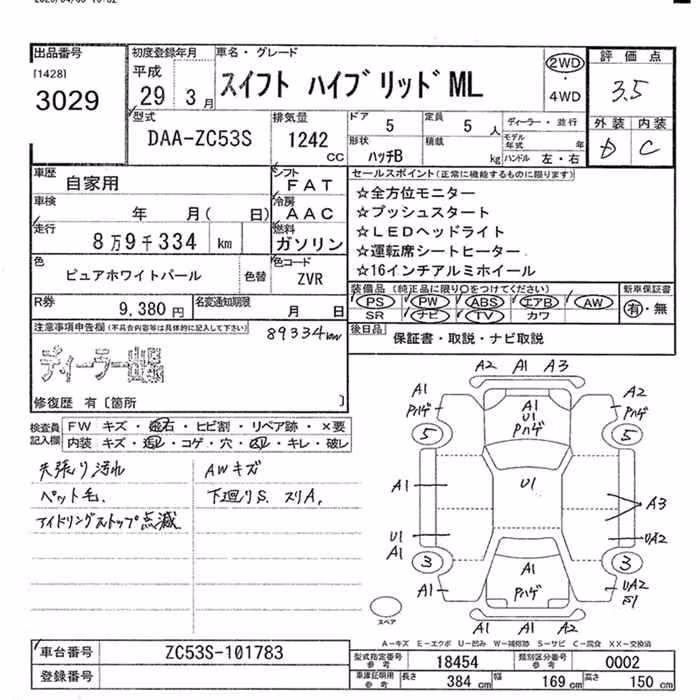 出品番号
[1428]
3029
初度登録年月
平成
29 3月
車名・グレード
スイフト ハイブリッドML
2WD
・
4WD
評価点
3.5
外装 内装
D C
型式
DAA-ZC53S
排気量
1242
CC
ドア
5
定員
5 人
ディーラー・並行
形状
ハッチB
積載
kg
モデル年式
年
ハンドル 左・右
車歴
自家用
シフト
FAT
車検
年 月( 日)
冷房
AAC
走行
8万9千334 km
燃料
ガソリン
色
ピュアホワイトパール
色替
色コード
ZVR
R券
9,380円
名変通知期限
月 日
セールスポイント(正常に機能するものに限ります)
☆全方位モニター
☆プッシュスタート
☆LEDヘッドライト
☆運転席シートヒーター
☆16インチアルミホイール
装備品 (純正品に限り○をつけてください)
PS PW ABS エアB AW
SR ナビ TV カワ
新車保証書
有・無
後日品
保証書・取説・ナビ取説
注意事項申告欄(不具合内容等は具体的に記入して下さい)
89334km
ディーラー出品
修復歴 有〔箇所 〕
検査員記入欄
FW キズ・飛石・ヒビ割・リペア跡・×要
内装 キズ・汚レ・コゲ・穴・・キレ・破レ
天張り汚れ
ペット毛.
アイドリングストップ点滅
AWキズ
下廻りS. スリA,
A2 A1 A3
A1
Pハゲ
5
A1
U1
Pハゲ
A2
Pハゲ
5
A1
U1
A3
U1
A1
3
A1
UA2
3
A1
Pハゲ
UA2
A1 A1 A2
スペア
A-キズ E-エクボ U-凹み W-補修跡 S-サビ C-腐食 XX-交換済
車台番号
ZC53S-101783
登録番号
型式指定番号
参考
18454
類別区分番号
参考
0002
車庫証明用
参考
長さ 384 cm
幅 169 cm
高さ 150 cm